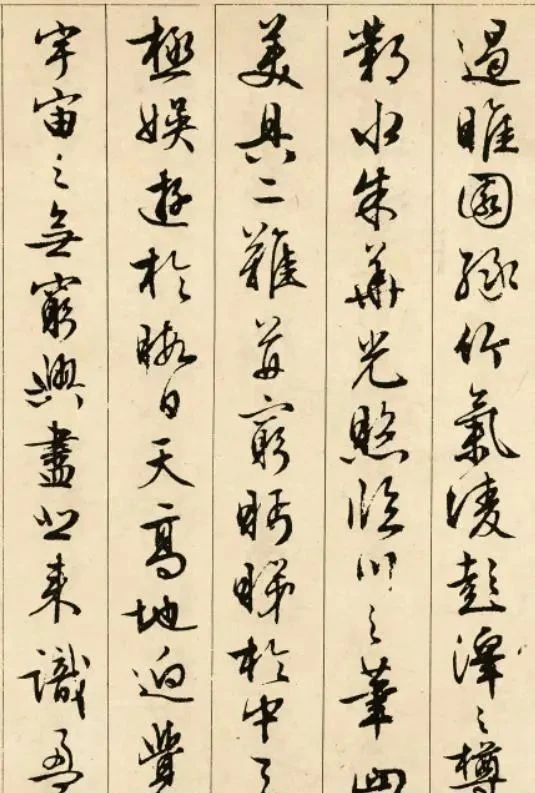 遏睢園緑竹氣凌彭澤之樽
鄴水朱華光照臨川之筆四
美具二難并窮眄睇於中天
極娛遊於暇日天高地迥覺
宇宙之無窮興盡悲來識盈